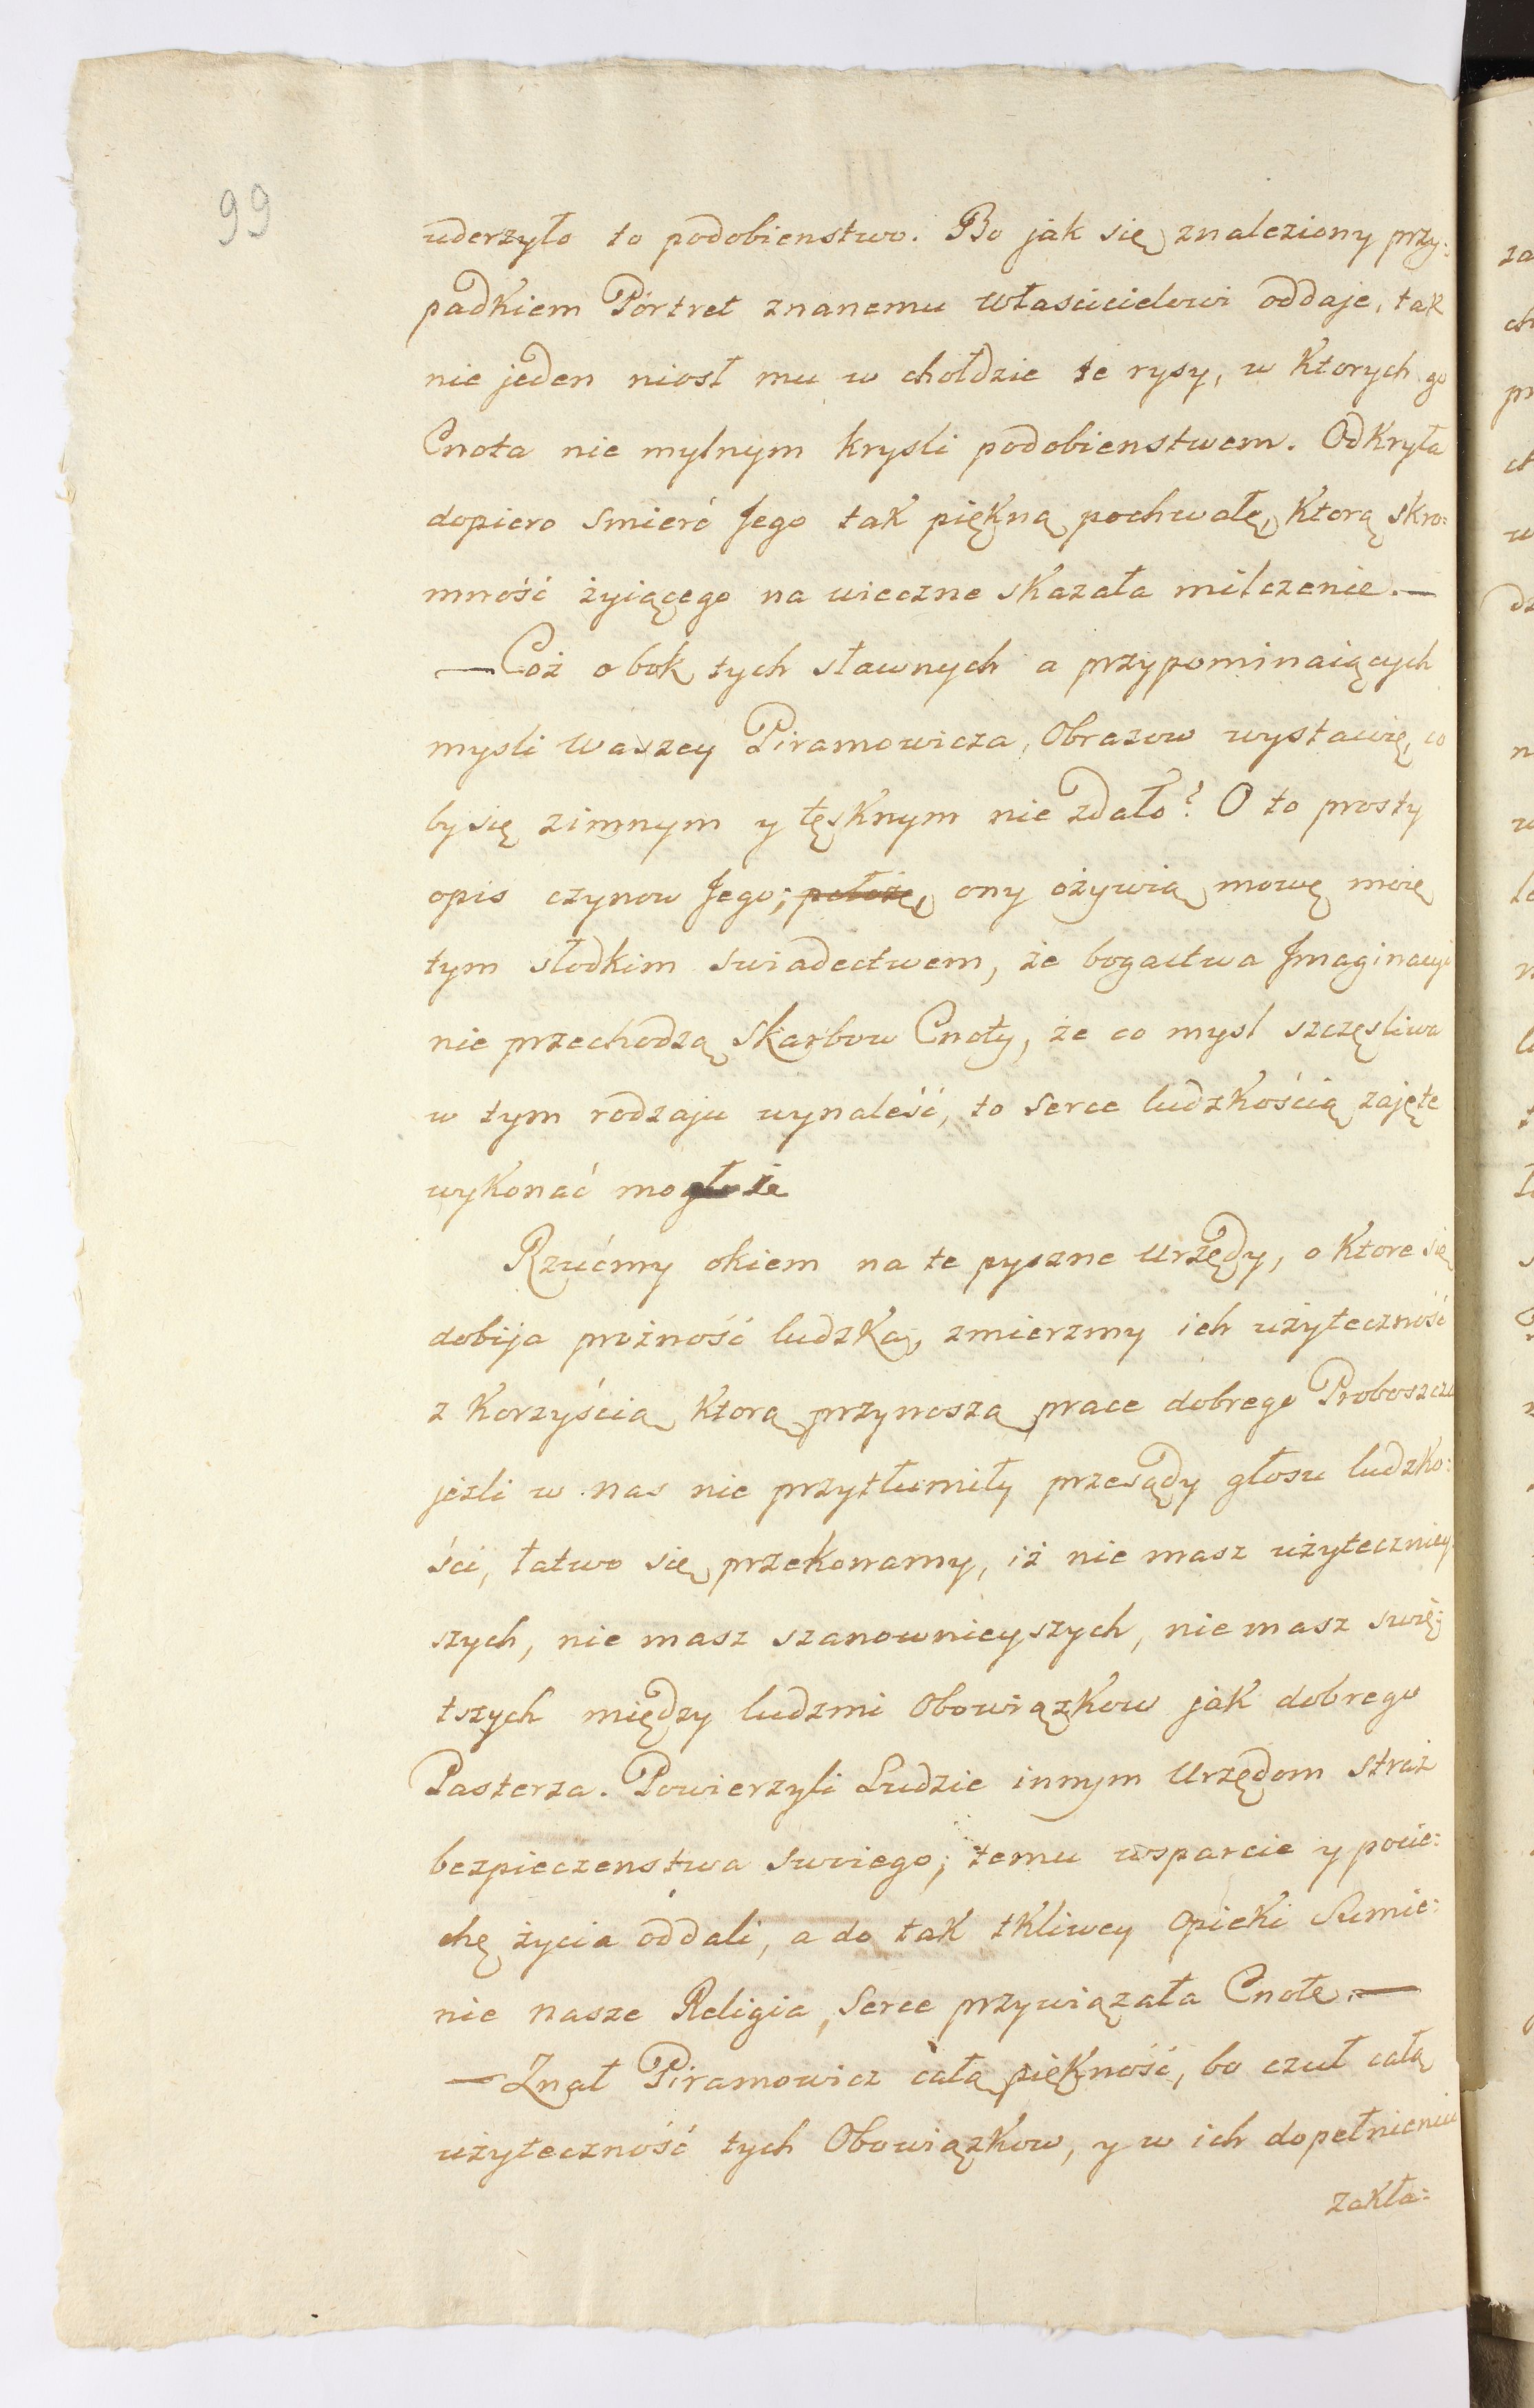 99
uderzyło to podobienstwo. Bo jak się znaleziony przy:
padkiem Pórtret znanemu właścicielowi oddaje, tak
nie jeden niosł mu w chołdzie te rysy, w ktorych go
Cnota nie mylnym krysli podobienstwem. Odkryła
dopiero smierć Jego tak piękną pochwałę, ktorą skro:
mność żyiącego na wieczne skazała milczenie.—
—Coż obok tych sławnych a przypominaiących
mysli waszey Piramowicza, Obrazow wystawię, co
by się zimnym y tęsknym nie zdało? O to prosty
opis czynow Jego; położę, ony ożywią mowę moię
tym słodkim swiadectwem, że bogactwa Imaginacyi
nie przechodzą skarbow Cnoty, że co mysl szczęsliwa
w tym rodzaju wynaleść, to serce ludzkością zajęte
wykonać mogło
Rzućmy okiem na te pyszne urzędy, o ktore się
dobija prożność ludzka, zmierzmy ich użyteczność
z korzyścią ktorą przynoszą prace dobrego Proboszcza
jeźli w nas nie przytłumiły przesądy głosu ludzko:
ści, łatwo się przekonamy, iż nie masz użyteczniey:
szych, nie masz szanownieyszych, nie masz swię:
tszych między ludzmi Obowiązkow jak dobrego
Pasterza. Powierzyli Ludzie innym Urzędom straż
bezpieczenstwa swoiego; temu wsparcie y pocie:
chę życia oddali, a do tak tkliwey opieki Sumie:
nie nasze Religia, serce przywiązała Cnota.—
—Znał Piramowicz całą piękność, bo czuł całą
użyteczność tych Obowiązkow, y w ich dopełnieniu
zakła: